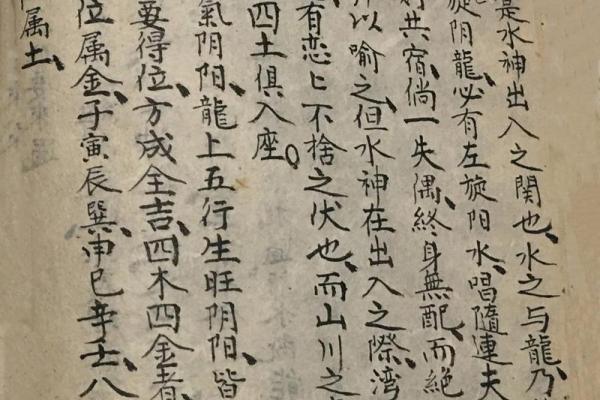 是水神出入之関也、水之与龍、乃
旋阴龍、必有左旋阳水、唱隨連夫
共宿、倘一失偶、終身無配、而絕
以喻之、但水神在出入之際、湾
有恋〻不捨之伏也、而山川之
四土俱入座。
氣阴阳、龍上五行生旺阴阳、皆
要得位、方成全吉、四木四金者、
位属金、子寅辰巽、申巳辛壬、八
属土、